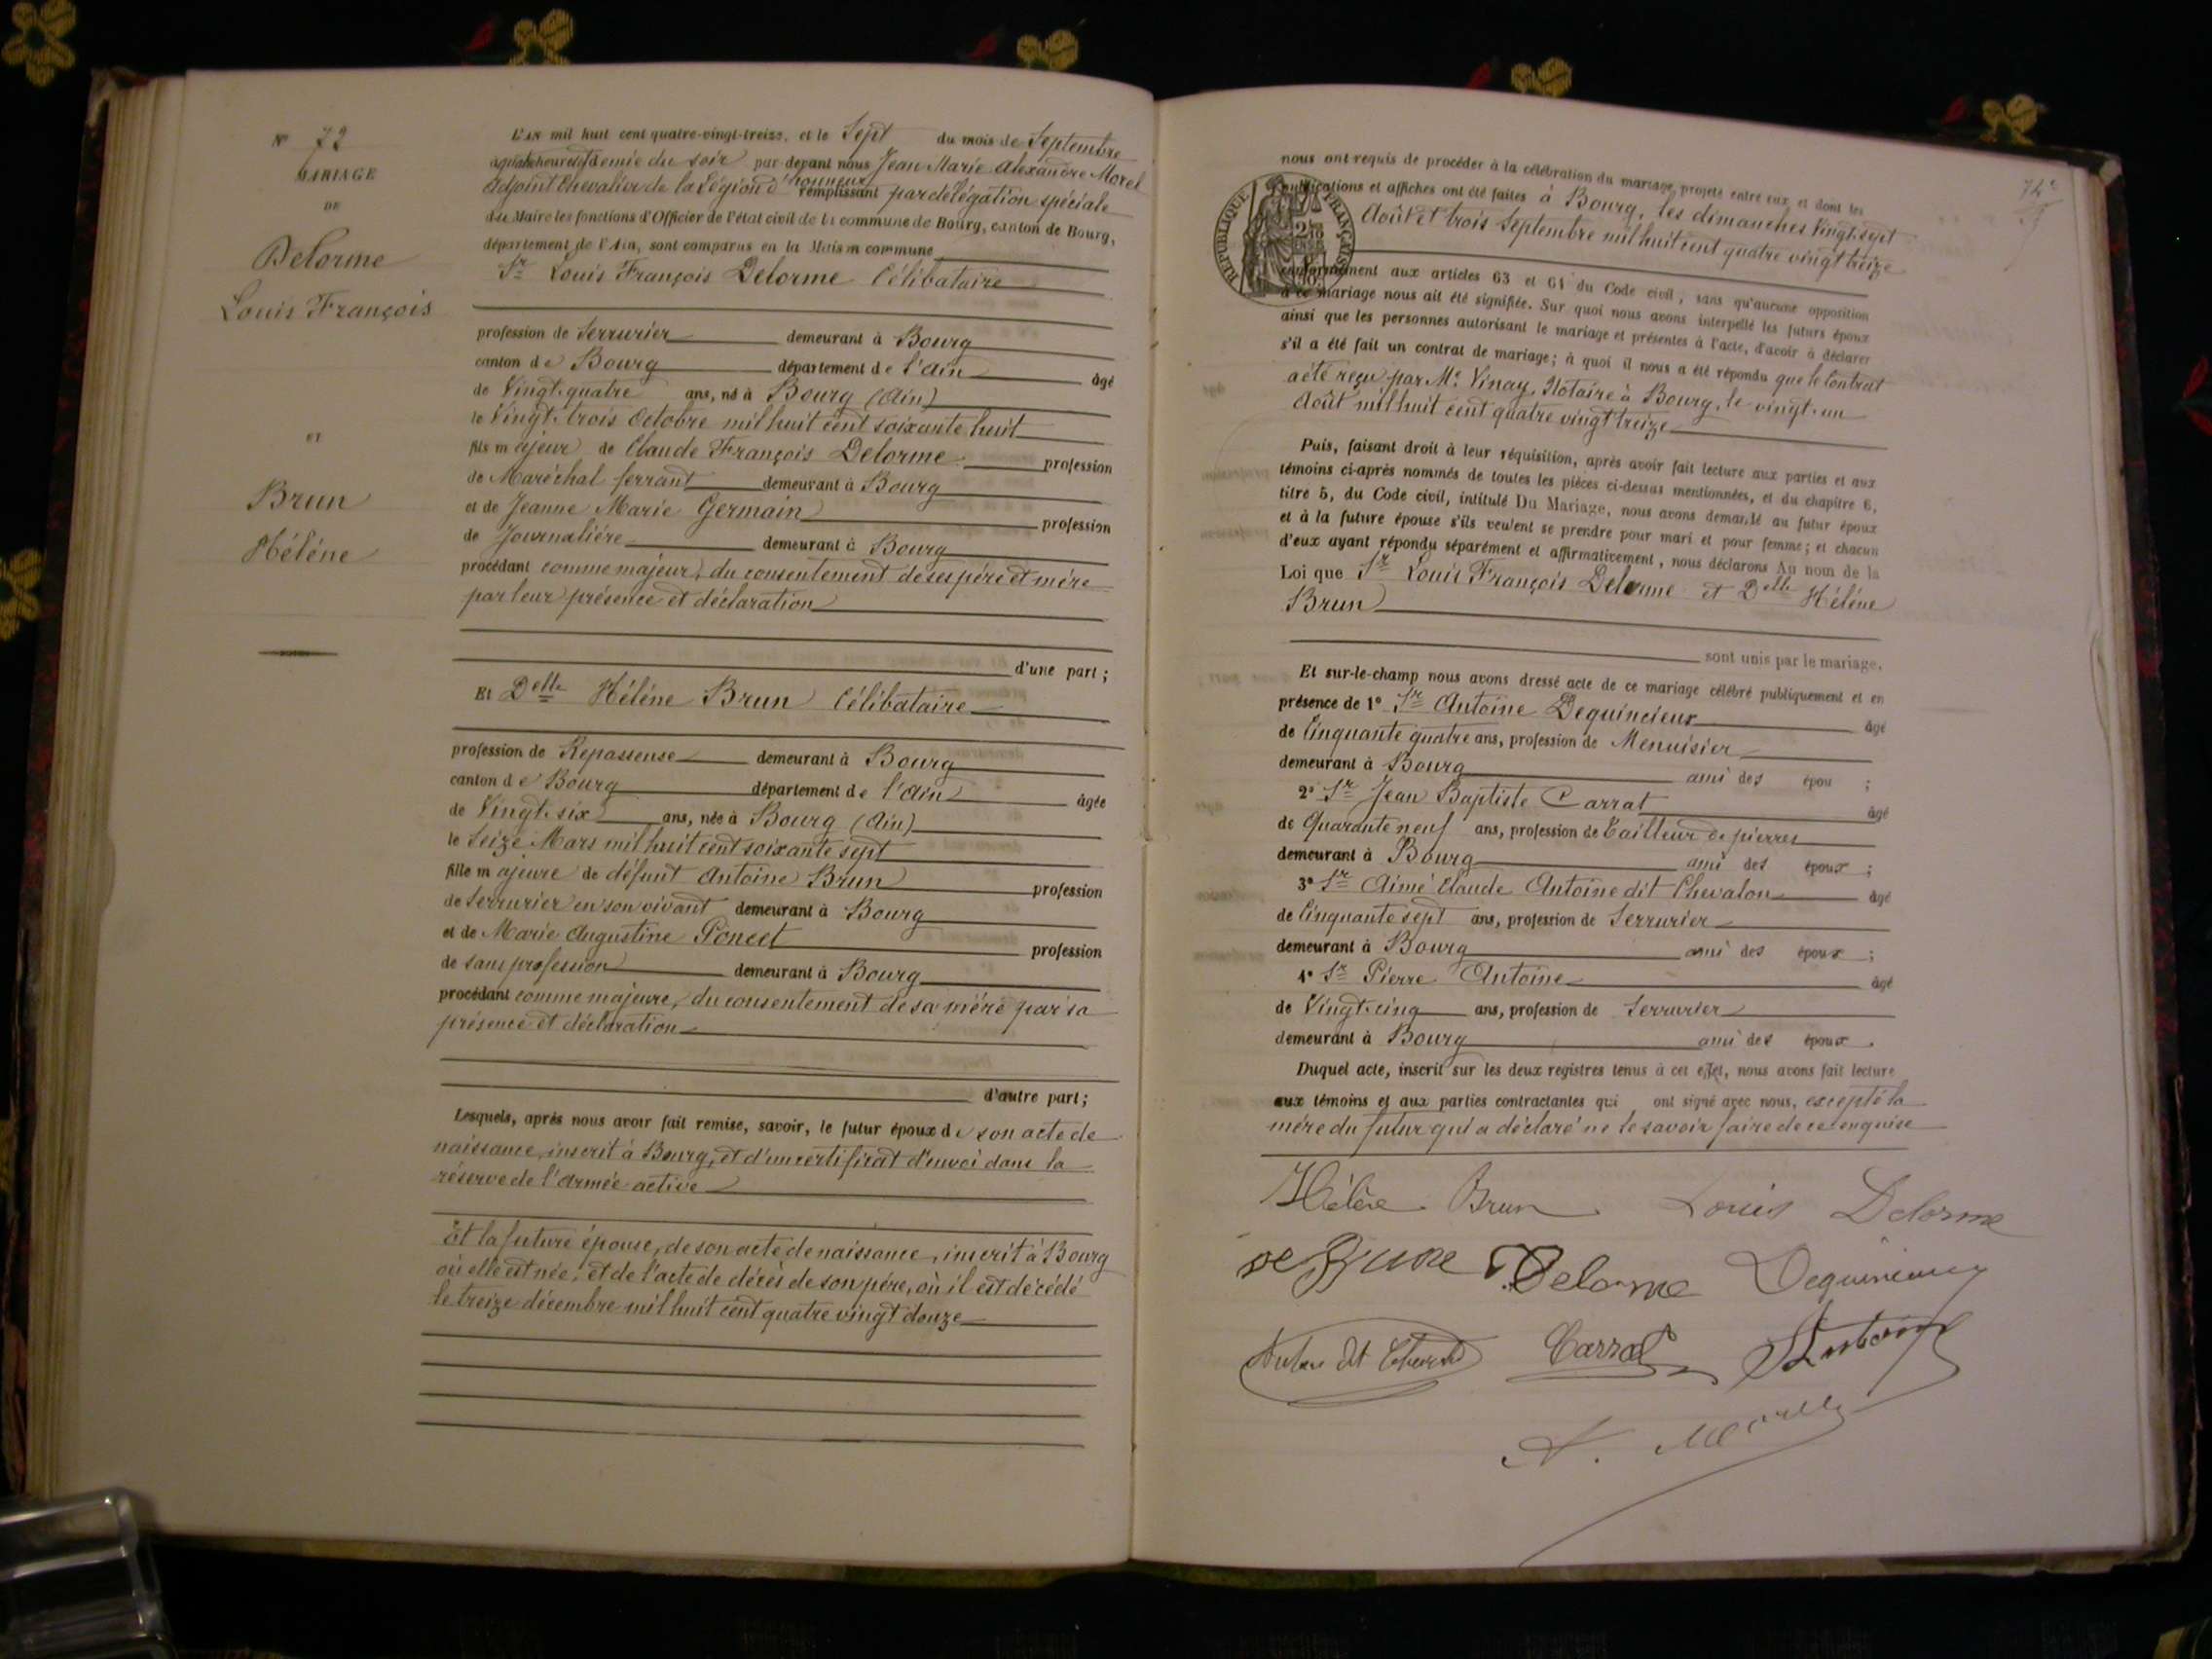 N° 72
MARIAGE
DE
Delorme
Louis François
ET
Brun
Héléne
L'AN mil huit cent quatre-vingt-treize, et le Sept du mois de Septembre
à quatre heures et demie du soir par-devant nous Jean Marie Alexandre Morel
adjoint Chevalier de la Légion d'honneur remplissant par délégation spéciale
du Maire les fonctions d'Officier de l'état civil de la commune de Bourg, canton de Bourg,
département de l'Ain, sont comparus en la Maison commune
Sr Louis François Delorme Célibataire
profession de Serrurier demeurant à Bourg
canton de Bourg département de l'Ain âgé
de Vingt-quatre ans, né à Bourg (Ain)
le Vingt-trois Octobre mil huit cent soixante huit
fils majeur de Claude François Delorme profession
de Maréchal ferrant demeurant à Bourg
et de Jeanne Marie Germain profession
de Journaliére demeurant à Bourg
procédant comme majeur, du consentement de ses pére et mére
par leur présence et déclaration
d'une part ;
Et Delle Héléne Brun Célibataire
profession de Repasseuse demeurant à Bourg
canton de Bourg département de l'Ain âgée
de Vingt-six ans, née à Bourg (Ain)
le Seize Mars mil huit cent soixante sept
fille majeure de défunt Antoine Brun profession
de Serrurier en son vivant demeurant à Bourg
et de Marie Augustine Poncet profession
de sans profession demeurant à Bourg
procédant comme majeure, du consentement de sa mére par sa
présence et déclaration
d'autre part ;
Lesquels, après nous avoir fait remise, savoir, le futur époux de son acte de
naissance, inscrit à Bourg, et d'un certificat d'envoi dans la
réserve de l'Armée active
Et la future épouse, de son acte de naissance, inscrit à Bourg
où elle est née, et de l'acte de décès de son pére, où il est décédé
le treize décembre mil huit cent quatre vingt douze
72e
nous ont requis de procéder à la célébration du mariage projeté entre eux et dont les
publications et affiches ont été faites à Bourg, les dimanches Vingt-sept
Août et trois Septembre mil huit cent quatre vingt treize
RÉPUBLIQUE FRANÇAISE
conformément aux articles 63 et 64 du Code civil, sans qu'aucune opposition
à ce mariage nous ait été signifiée. Sur quoi nous avons interpellé les futurs époux
ainsi que les personnes autorisant le mariage et présentes à l'acte, d'avoir à déclarer
s'il a été fait un contrat de mariage ; à quoi il nous a été répondu que le Contrat
a été reçu par Me Vinay, Notaire à Bourg, le vingt-un
Août mil huit cent quatre vingt treize
Puis, faisant droit à leur réquisition, après avoir fait lecture aux parties et aux
témoins ci-après nommés de toutes les pièces ci-dessus mentionnées, et du chapitre 6,
titre 5, du Code civil, intitulé Du Mariage, nous avons demandé au futur époux
et à la future épouse s'ils veulent se prendre pour mari et pour femme ; et chacun
d'eux ayant répondu séparément et affirmativement, nous déclarons Au nom de la
Loi que Sr Louis François Delorme et Delle Héléne
Brun
sont unis par le mariage.
Et sur-le-champ nous avons dressé acte de ce mariage célébré publiquement et en
présence de 1° Sr Antoine Dequincieux âgé
de Cinquante quatre ans, profession de Menuisier
demeurant à Bourg ami des épou ;
2° Sr Jean Baptiste Carrat âgé
de Quarante neuf ans, profession de Tailleur de pierres
demeurant à Bourg ami des époux ;
3° Sr Aimé Claude Antoine dit Chevalon âgé
de Cinquante sept ans, profession de Serrurier
demeurant à Bourg ami des époux ;
4° Sr Pierre Antoine âgé
de Vingt-cinq ans, profession de Serrurier
demeurant à Bourg ami des époux .
Duquel acte, inscrit sur les deux registres tenus à cet effet, nous avons fait lecture
aux témoins et aux parties contractantes qui ont signé avec nous, excepté la
mére du futur qui a déclaré ne le savoir faire de ce enquise
Hélène Brun Louis Delorme
Brun Delorme Dequincieux
Antoine dit Chevalon Carrat Antoine
A. Morel